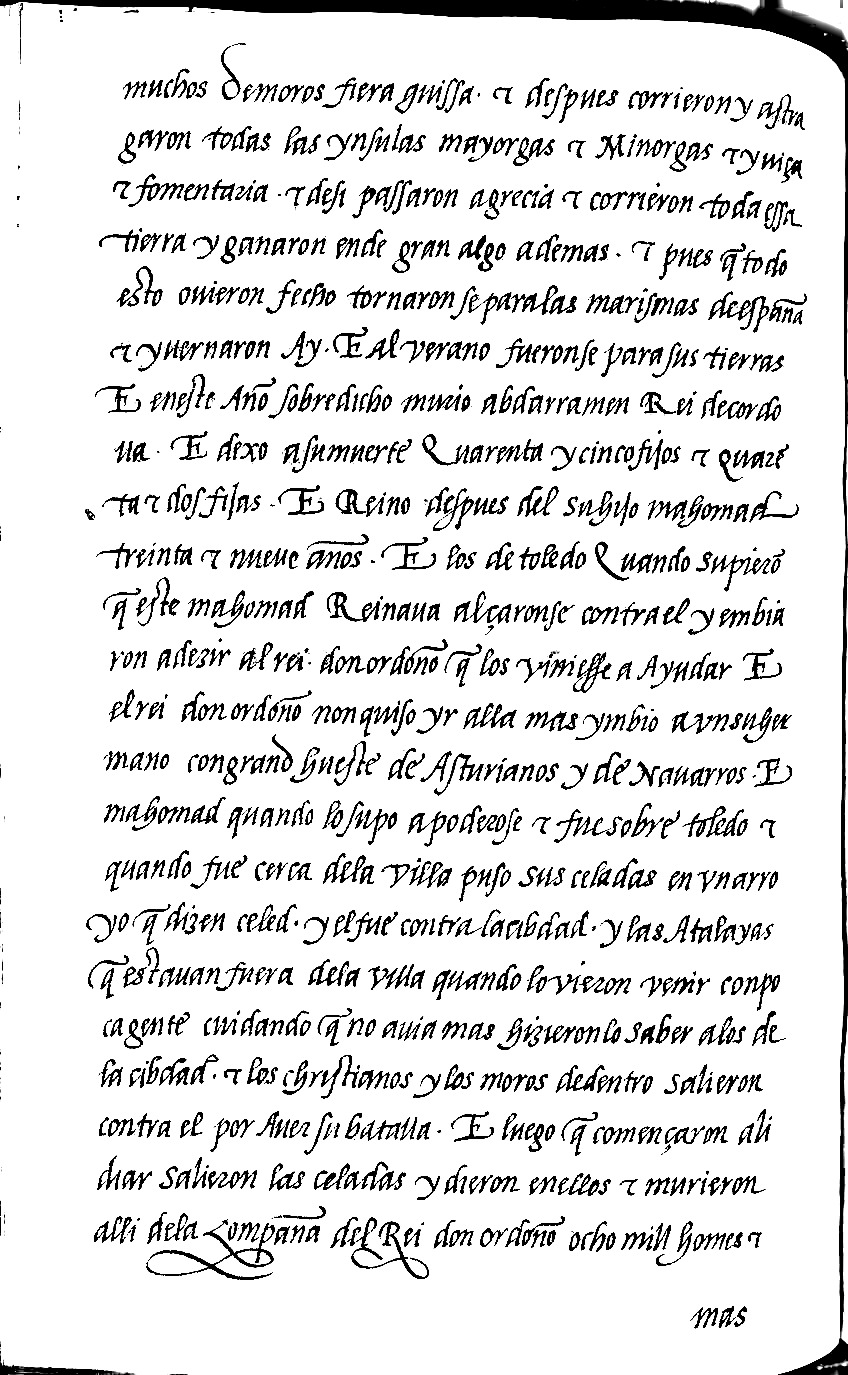 muchos de moros fiera guissa · ⁊ despues corrieron y astra
garon todas las ynsulas mayorgas ⁊ Minorgas ⁊ yuiça
⁊ fomentaria · ⁊ desi passaron a grecia ⁊ corrieron toda essa
tierra y ganaron ende gran algo ademas · ⁊ pues q̃ todo
esto ouieron fecho tornaron se para las marismas de españa
⁊ yuernaron Ay · E Al verano fueronse para sus tierras
E en este Año sobredicho murio abdarramen Rei de cordo
ua · E dexo a su muerte Quarenta y cinco fijos ⁊ Quarẽ
ta ⁊ dos fijas · E Reino despues del su hijo mahomad
treinta ⁊ nueue años · E los de toledo Quando supierõ
q̃ este mahomad Reinaua alçaronse contra el y embia
ron a dezir al rei don ordoño q̃ los viniesse a Ayudar E
el rei don ordoño non quiso yr alla mas ymbio a vn su her
mano con grand hueste de Asturianos y de Nauarros · E
mahomad quando lo supo apoderose ⁊ fue sobre toledo ⁊
quando fue cerca dela villa puso sus celadas en vn arro
yo q̃ dizen celed · y el fue contra la cibdad · y las Atalayas
q̃ estauan fuera dela villa quando lo vieron venir con po
ca gente cuidando q̃ no auia mas hizieronlo saber alos de
la cibdad · ⁊ los christianos y los moros de dentro salieron
contra el por Auer su batalla · E luego q̃ començaron a li
diar salieron las celadas y dieron enellos ⁊ murieron
alli dela Compaña del Rei don ordoño ocho mill homes ⁊
mas